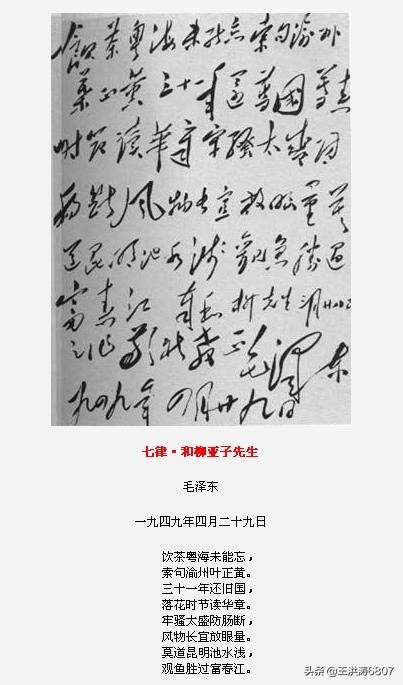 飲茶粤海未能忘索句渝州
葉正黄三十一年還舊國落花
时節讀華章牢騷太盛防
腸斷風物長宜放眼量莫
道昆明池水浅觀魚勝過
富春江 奉和柳先生三月廿八日
之作敬祈教正 毛澤东
一九四九年四月廿九日
七律·和柳亚子先生
毛泽东
一九四九年四月二十九日
饮茶粤海未能忘，
索句渝州叶正黄。
三十一年还旧国，
落花时节读华章。
牢骚太盛防肠断，
风物长宜放眼量。
莫道昆明池水浅，
观鱼胜过富春江。
头条 @王洪涛6807